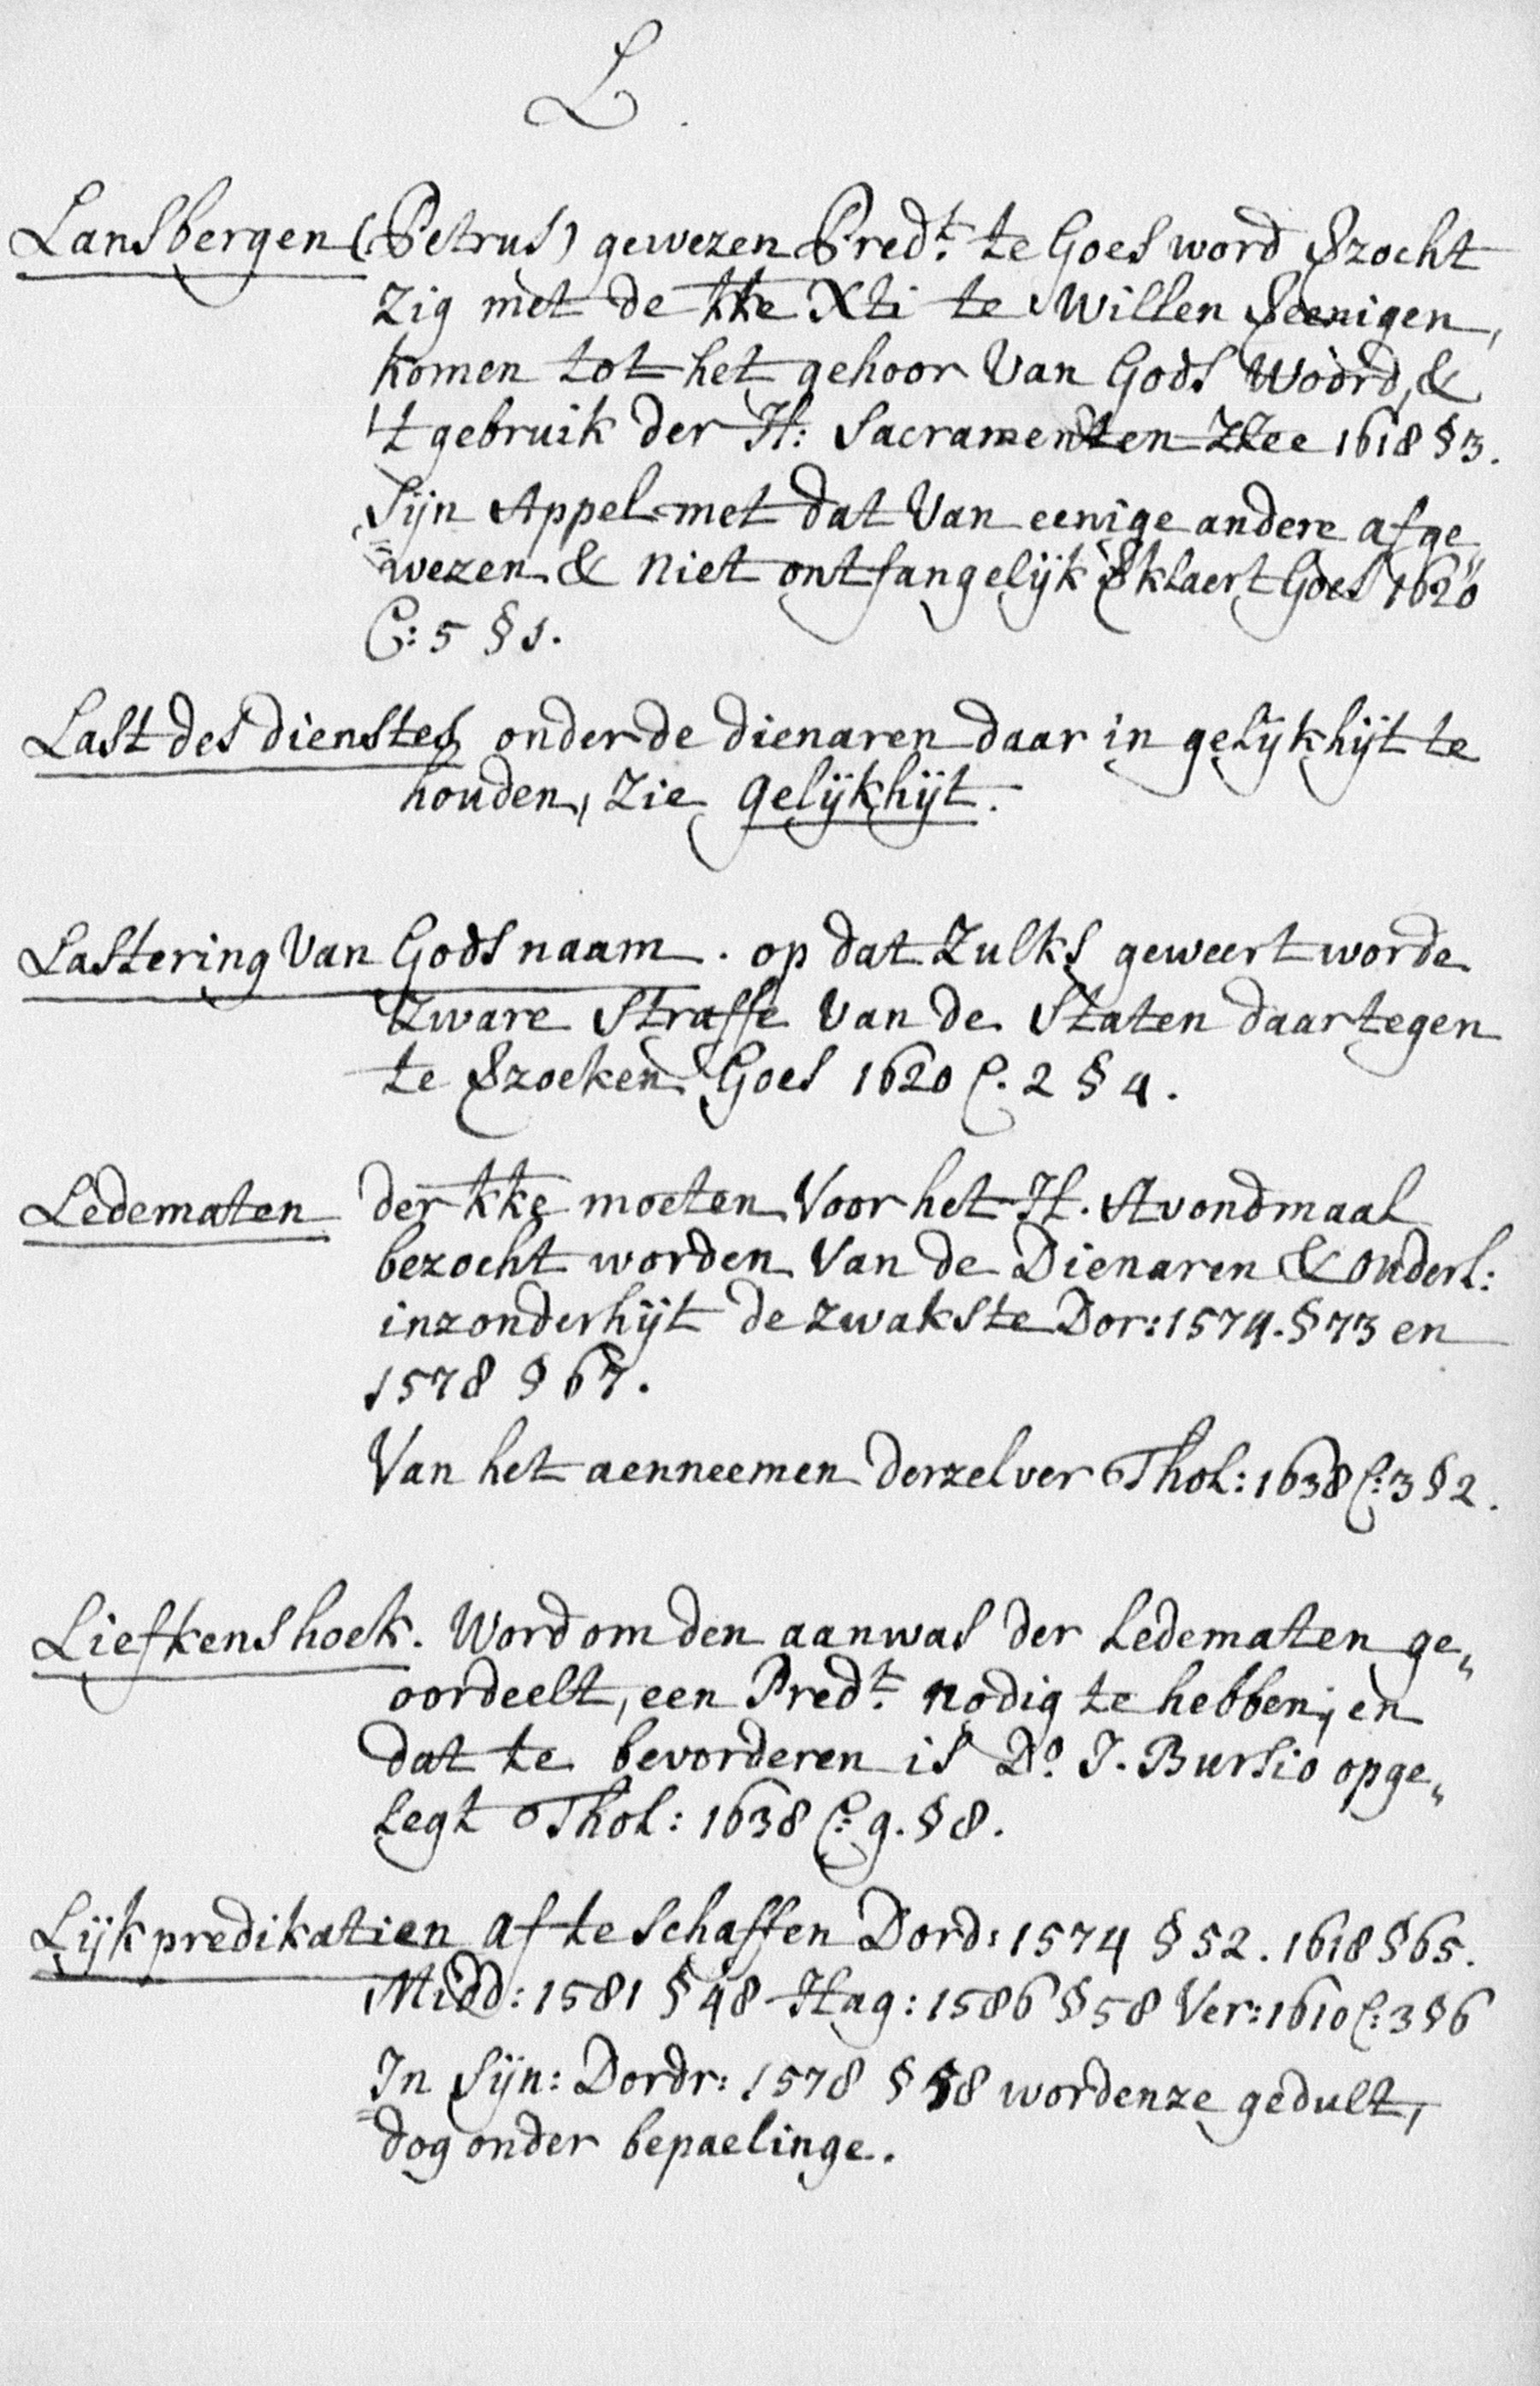 L.
Lansbergen (Petrus) gewezen Pred.t te Goes word Vzocht
zig met de kke Xti te willen Veenigen,
komen tot het gehoor van Gods Woord, &
't gebruik der H: Sacramenten 1618 § 3.
Sijn Appel met dat van eenige andere afge„
„wezen & niet ontfangelijk Vklaert Goes 1620
C: 5 § 1.
Last des dienstes onder de dienaren daar in gelijkhijt te
houden, zie gelijkhijt.
Lastering van Gods naam. op dat zulks geweert worde
zware straffe van de Staten daartegen
te Vzoeken Goes 1620 C. 2 § 4.
Ledematen der kke moeten voor het H. Avondmaal
bezocht worden van de Dienaren & Ouderl:
inzonderhijt de zwakste Dor: 1574. § 73 en
1578 § 67.
Van het aenneemen derzelver Thol: 1638 C: 3 § 2.
Liefkenshoek. Word om den aanwas der Ledematen ge„
oordeelt, een Pred.t nodig te hebben; en
dat te bevorderen is Do. J. Bursio opge„
legt Thol: 1638 C: 9. § 8.
Lijkpredikatien af te schaffen Dord: 1574 § 52. 1618 § 65.
Midd: 1581 § 48 Hag: 1586 § 58 Ver: 1610 C: 3 § 6
In Sijn: Dordr: 1578 § 58 wordenze gedult,
dog onder bepaelinge.